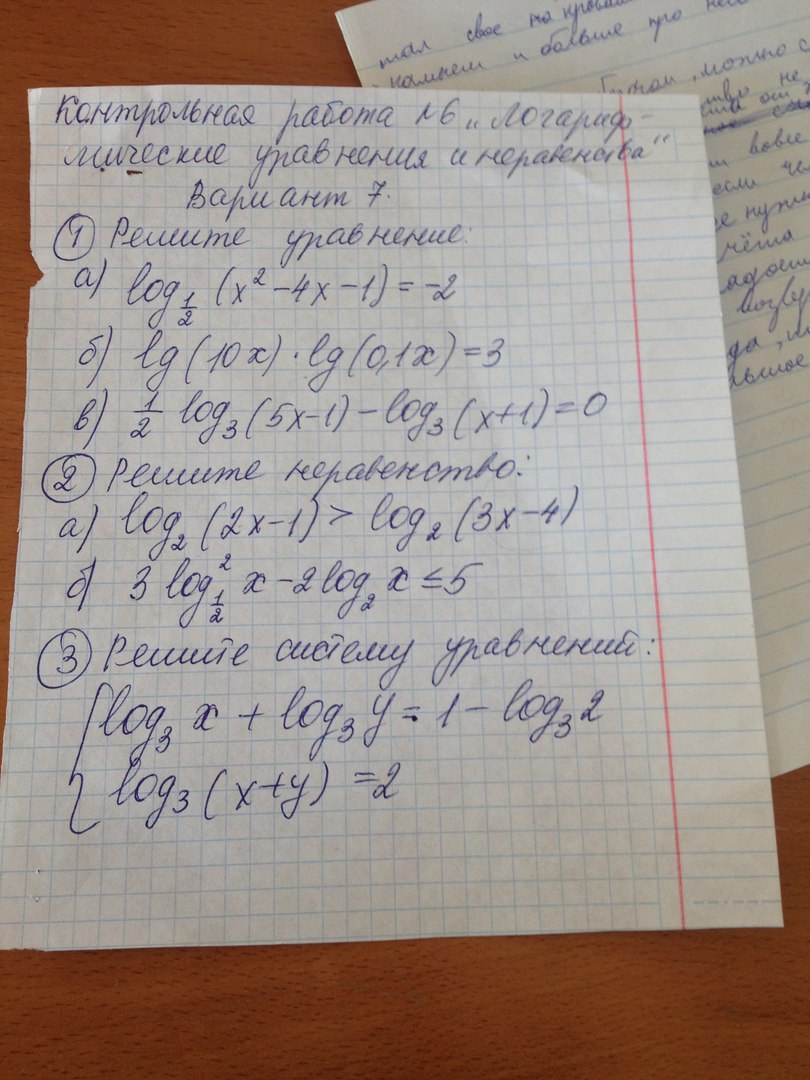 Контрольная работа №6 „Логариф-
мические уравнения и неравенства"
Вариант 7.
① Решите уравнение:
а) log_{1/2} (x² - 4x - 1) = -2
б) lg (10x) · lg (0,1x) = 3
в) 1/2 log₃ (5x-1) - log₃ (x+1) = 0
② Решите неравенство:
а) log₂ (2x-1) > log₂ (3x-4)
б) 3 log²_{1/2} x - 2 log₂ x ≤ 5
③ Решите систему уравнений:
{ log₃ x + log₃ y = 1 - log₃ 2
log₃ (x+y) = 2
свое на
и больше про
можно с
от
вовсе
если